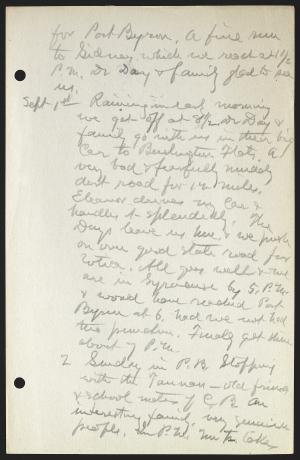 for Port Byron. A fine run
to Sidney which we reach at 1 1/2
P.M. Dr Day & family glad to see
us.
Sept 1st Raining in early morning
we get off at 8 1/2. Dr Day &
family go with us in their big
Car to Burlington Flats. A
very bad & fearfully muddy
dirt road for 12 miles.
Eleanor drives my Car &
handles it splendidly. The
Days leave us here & we push
on over good state road for
Utica. All goes well & we
are in Syracuse by 5 P.M.
& would have reached Port
Byron at 6, had we not had
two punctures. Finally get there
about 7 P.M.
2 Sunday in P.B. Stopping
with the Tannan - old friends
& school mates of C.B. an
interesting family, very genuine
people. In P.M. Mr